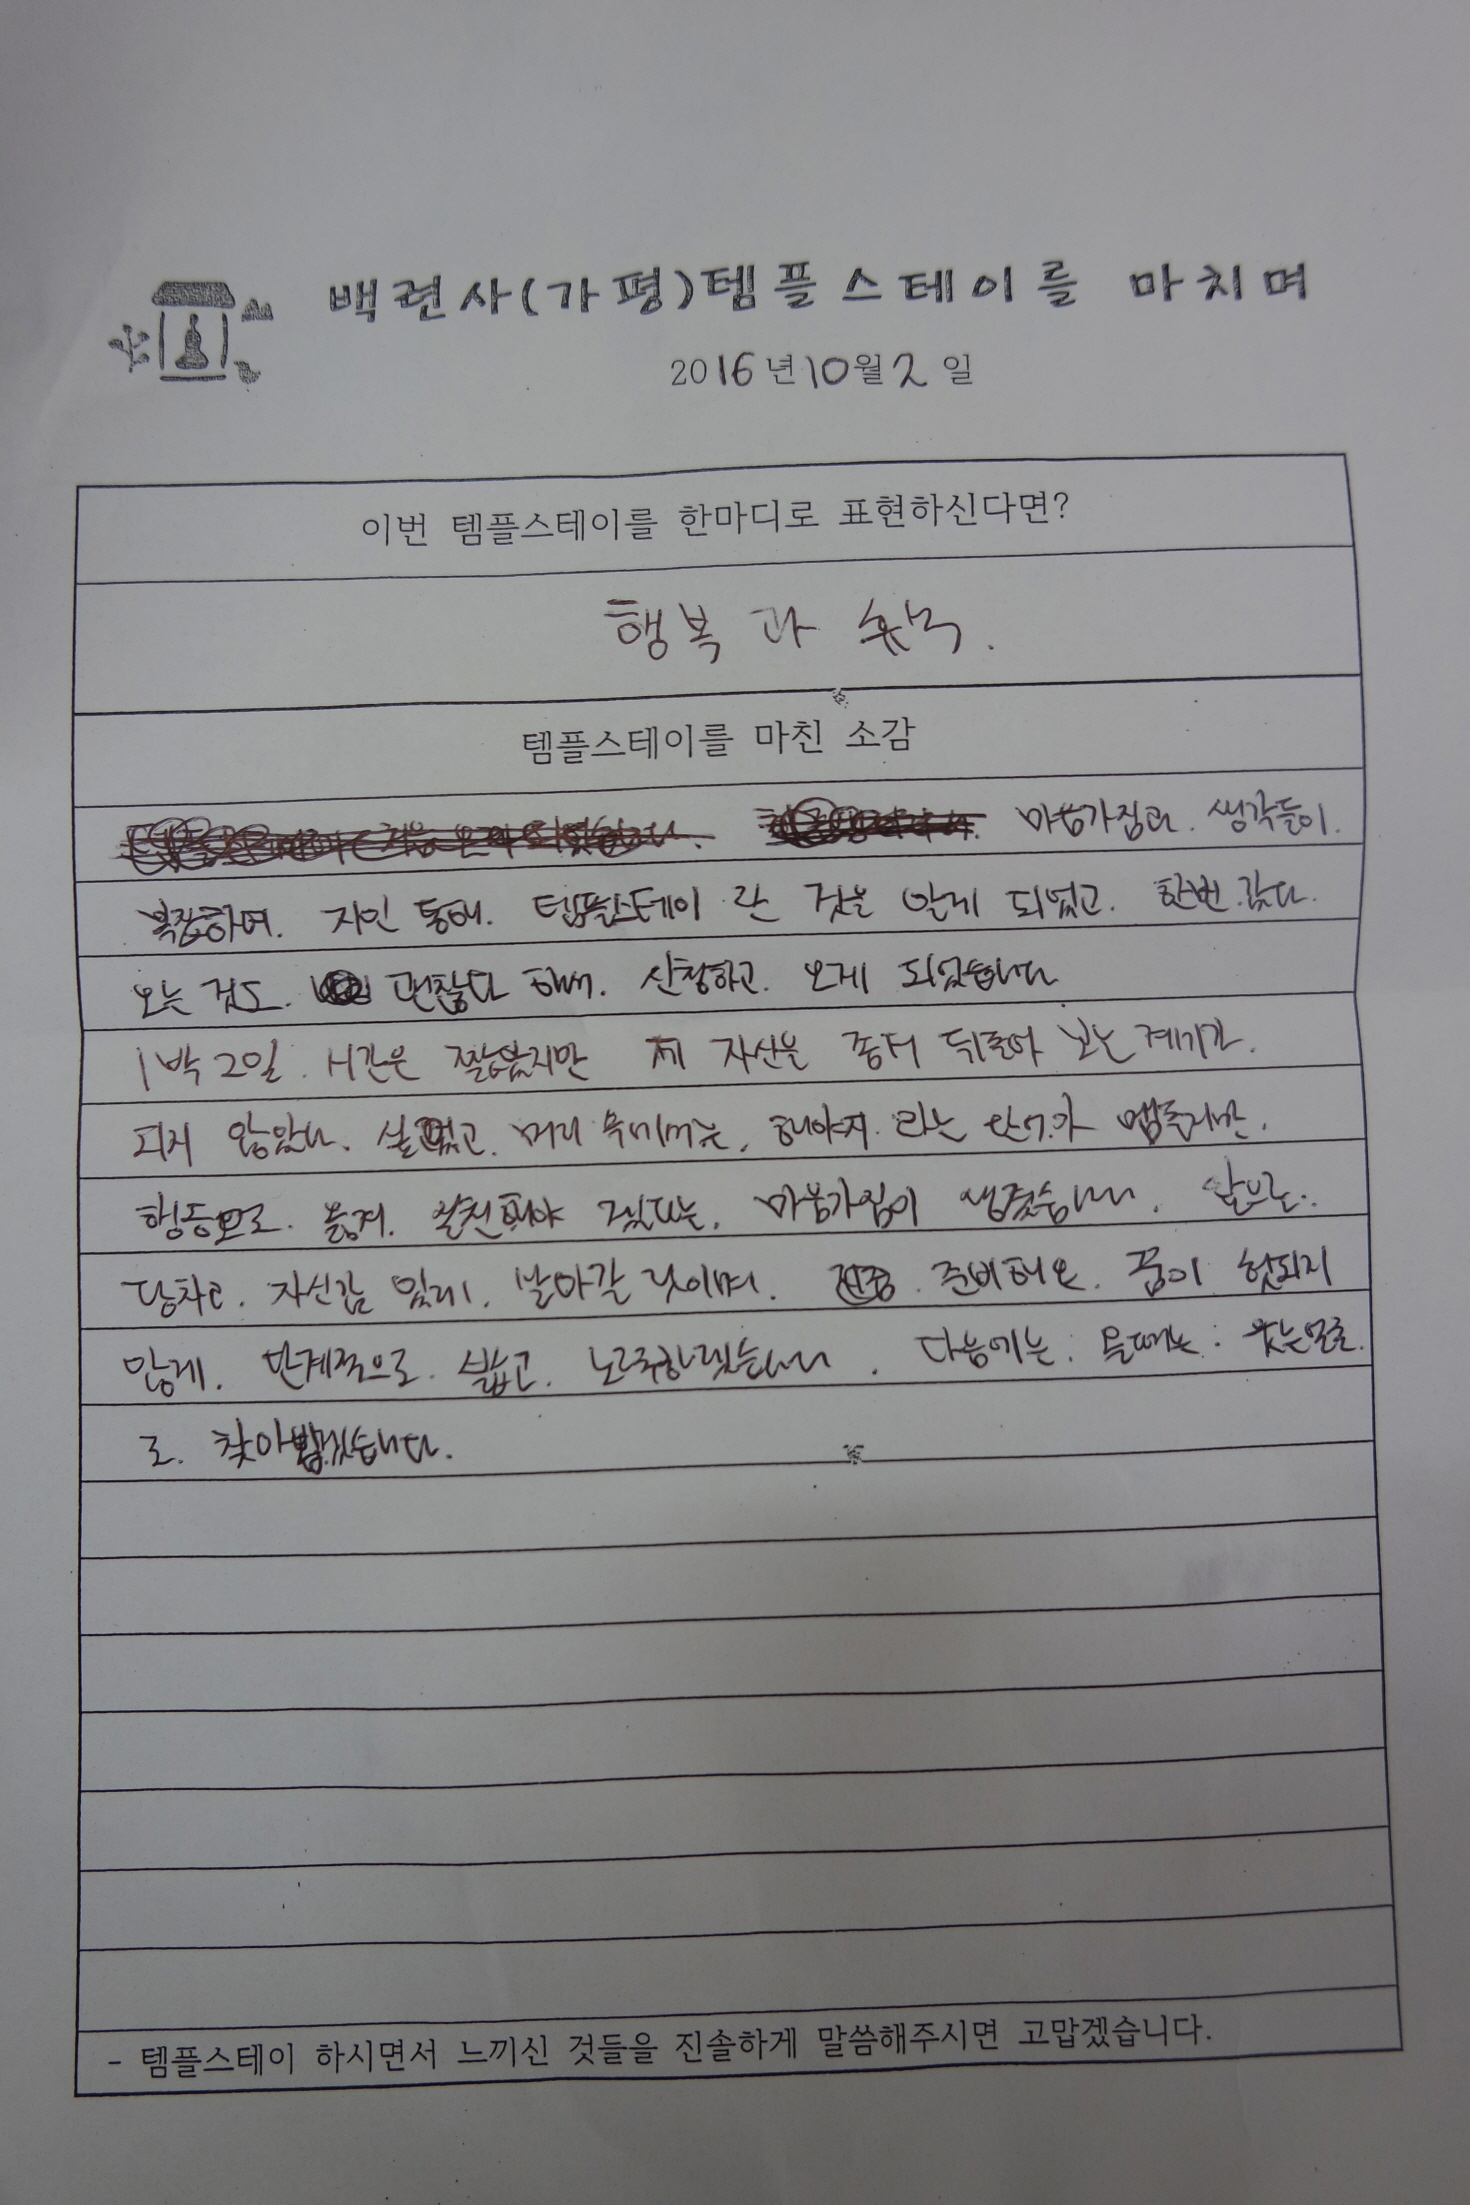 백련사(가평)템플스테이를 마치며
2016년 10월 2 일
이번 템플스테이를 한마디로 표현하신다면?
행복 과
템플스테이를 마친 소감
마음가짐과. 생각들이.
복잡하여. 지인 통해. 템플스테이 란 것을 알게 되었고. 한번 갔다.
오는 것도. 괜찮다 해서. 신청하고. 오게 되었습니다
1박 2일. 시간은 짧았지만 제 자신을 좀더 뒤돌아 보는 계기가.
되지 않았나. 싶었고. 머리 해야지. 라는 맴돌지만.
행동으로. 옮겨. 실천해야 겠다는. 마음가짐이 생겼습니다. 앞으로.
당차고. 자신감 있게. 날아갈 것이며. 준비해온. 꿈이 헛되지
않게. 단계적으로. 밟고. 노력하겠습니다. 다음에는. 올때는. 웃는얼굴.
로. 찾아뵙겠습니다.
- 템플스테이 하시면서 느끼신 것들을 진솔하게 말씀해주시면 고맙겠습니다.